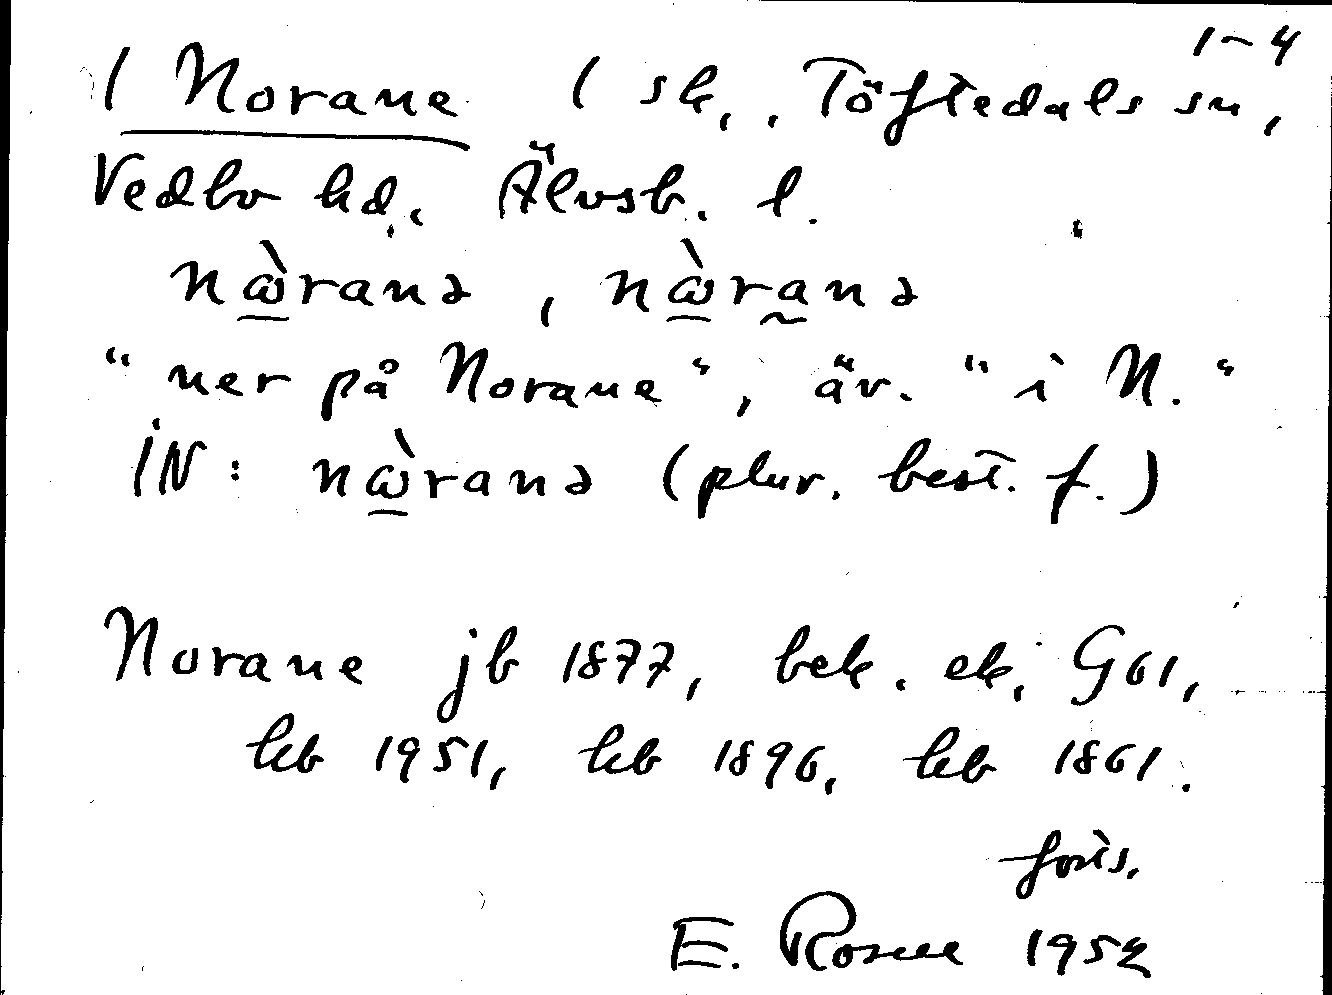 1-4
1 Norane 1 sk., Töftedals sn,
Vedbo hd. Älvsb. l.
nὼ̲ranə, nὼ̲ra̰nə
"ner på Norane", äv. "i N."
IN: nὼ̲ranə (plur. best. f.)
Norane jb 1877, bek. ek. G61,
kb 1951, kb 1896, kb 1861.
forts.
E. Rosell 1952